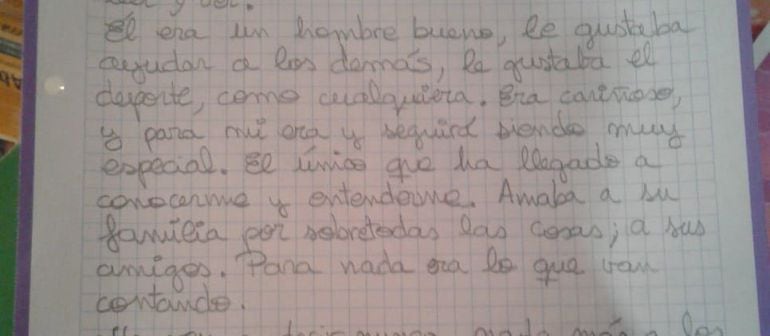 y ver.
Él era un hombre bueno, le gustaba
ayudar a los demás, le gustaba el
deporte, como cualquiera. Era cariñoso,
y para mí era y seguirá siendo muy
especial. El único que ha llegado a
conocerme y entenderme. Amaba a su
família por sobretodas las cosas; a sus
amigos. Para nada era lo que van
contando.
decir nunca nada más a los